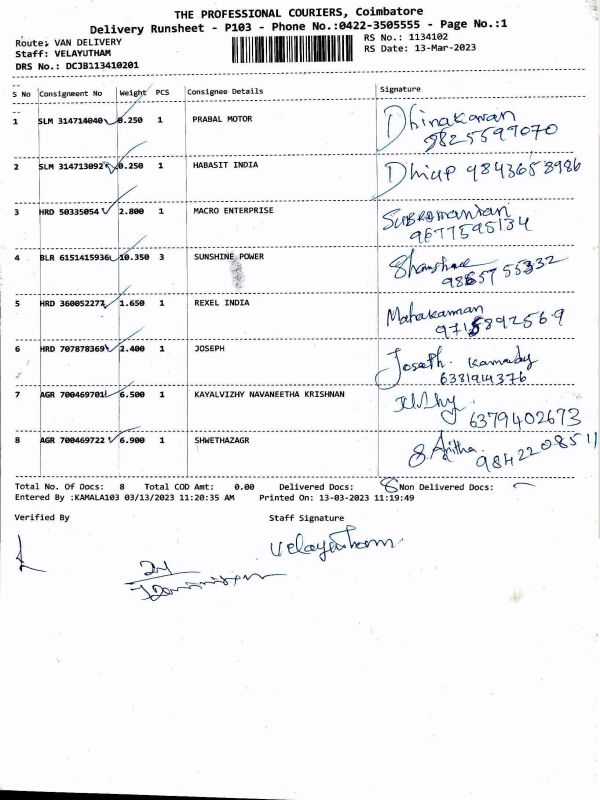 THE PROFESSIONAL COURIERS, Coimbatore
Delivery Runsheet - P103 - Phone No.:0422-3505555 - Page No.:1
Route: VAN DELIVERY
RS No.: 1134102
Staff: VELAYUTHAM
RS Date: 13-Mar-2023
DRS No.: DCJB113410201
S No Consignment No Weight PCS Consignee Details Signature
1 SLM 314714040 0.250 1 PRABAL MOTOR Dhinakaran
9825599070
2 SLM 314713092 0.250 1 HABASIT INDIA 9843658986
3 HRD 50335054 2.800 1 MACRO ENTERPRISE Subramanian
9677595134
4 BLR 6151415936 10.350 3 SUNSHINE POWER
9865755332
5 HRD 360052277 1.650 1 REXEL INDIA
9715892569
6 HRD 707878369 2.400 1 JOSEPH Joseph.
6381914376
7 AGR 700469701 6.500 1 KAYALVIZHY NAVANEETHA KRISHNAN
6379402673
8 AGR 700469722 6.900 1 SHWETHAZAGR S. Anitha
9842208511
Total No. Of Docs: 8 Total COD Amt: 0.00 Delivered Docs: 8 Non Delivered Docs: -
Entered By :KAMALA103 03/13/2023 11:20:35 AM Printed On: 13-03-2023 11:19:49
Verified By Staff Signature
Velayutham